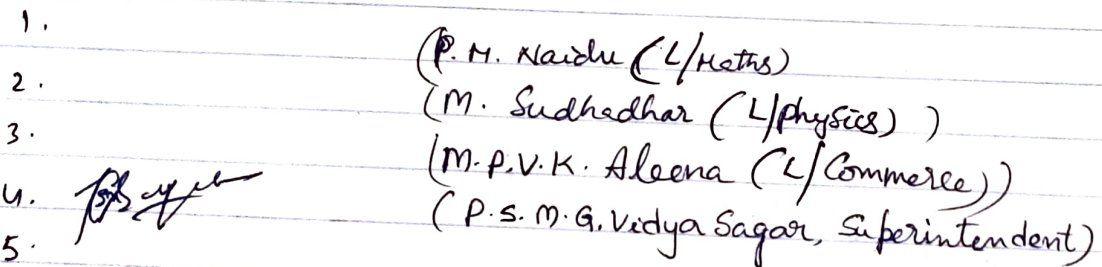 1.
(P. M. Naidu (L/Maths)
2.
(M. Sudhadhar (L/Physics))
3.
(M.P.V.K. Aleena (L/Commerce))
4.
(P.S.M.G. Vidya Sagar, Superintendent)
5.